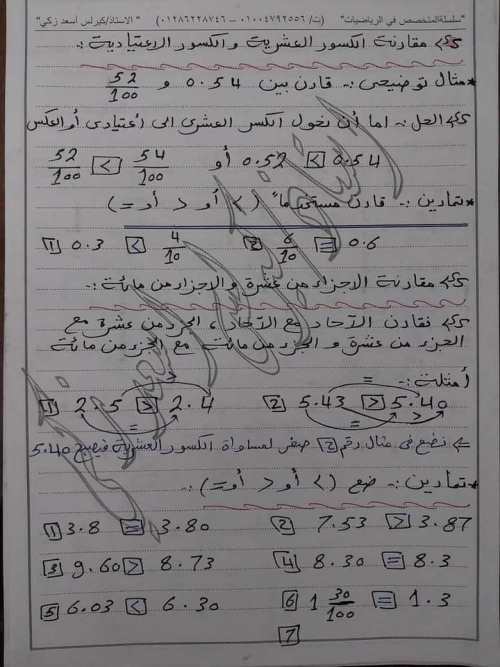 "سلسلة المتخصص في الرياضيات" (ت/ ٠١٠٠٤٧٩٢٥٥٦ – ٠١٢٨٦٢٢٨٧٤٦) "الاستاذ/كيرلس أسعد زكي"
مقارنة الكسور العشرية والكسور الاعتيادية :-
* مثال توضيحى :- قارن بين 0.54 و 52/100
الحل :- اما أن نحول الكسر العشرى الى اعتيادى أو العكس
0.54 > 0.52 أو 54/100 > 52/100
* تمارين :- قارن مستخدماً ( > أو < أو = )
1 0.3 < 4/10 2 6/10 = 0.6
مقارنة الاجزاء من عشرة والاجزاء من مائة :-
فقارن الآحاد مع الآحاد ، الجزء من عشرة مع
الجزء من عشرة و الجزء من مائة مع الجزء من مائة
أمثلة :-
1 2.5 > 2.4 2 5.43 > 5.40
نضع فى مثال رقم 2 صفر لمساواة الكسور العشرية فيصبح 5.40
* تمارين :- ضع ( > أو < أو = ) :-
1 3.8 = 3.80 2 7.53 > 3.87
3 9.60 > 8.73 4 8.30 = 8.3
5 6.03 < 6.30 6 1 30/100 = 1.3
7